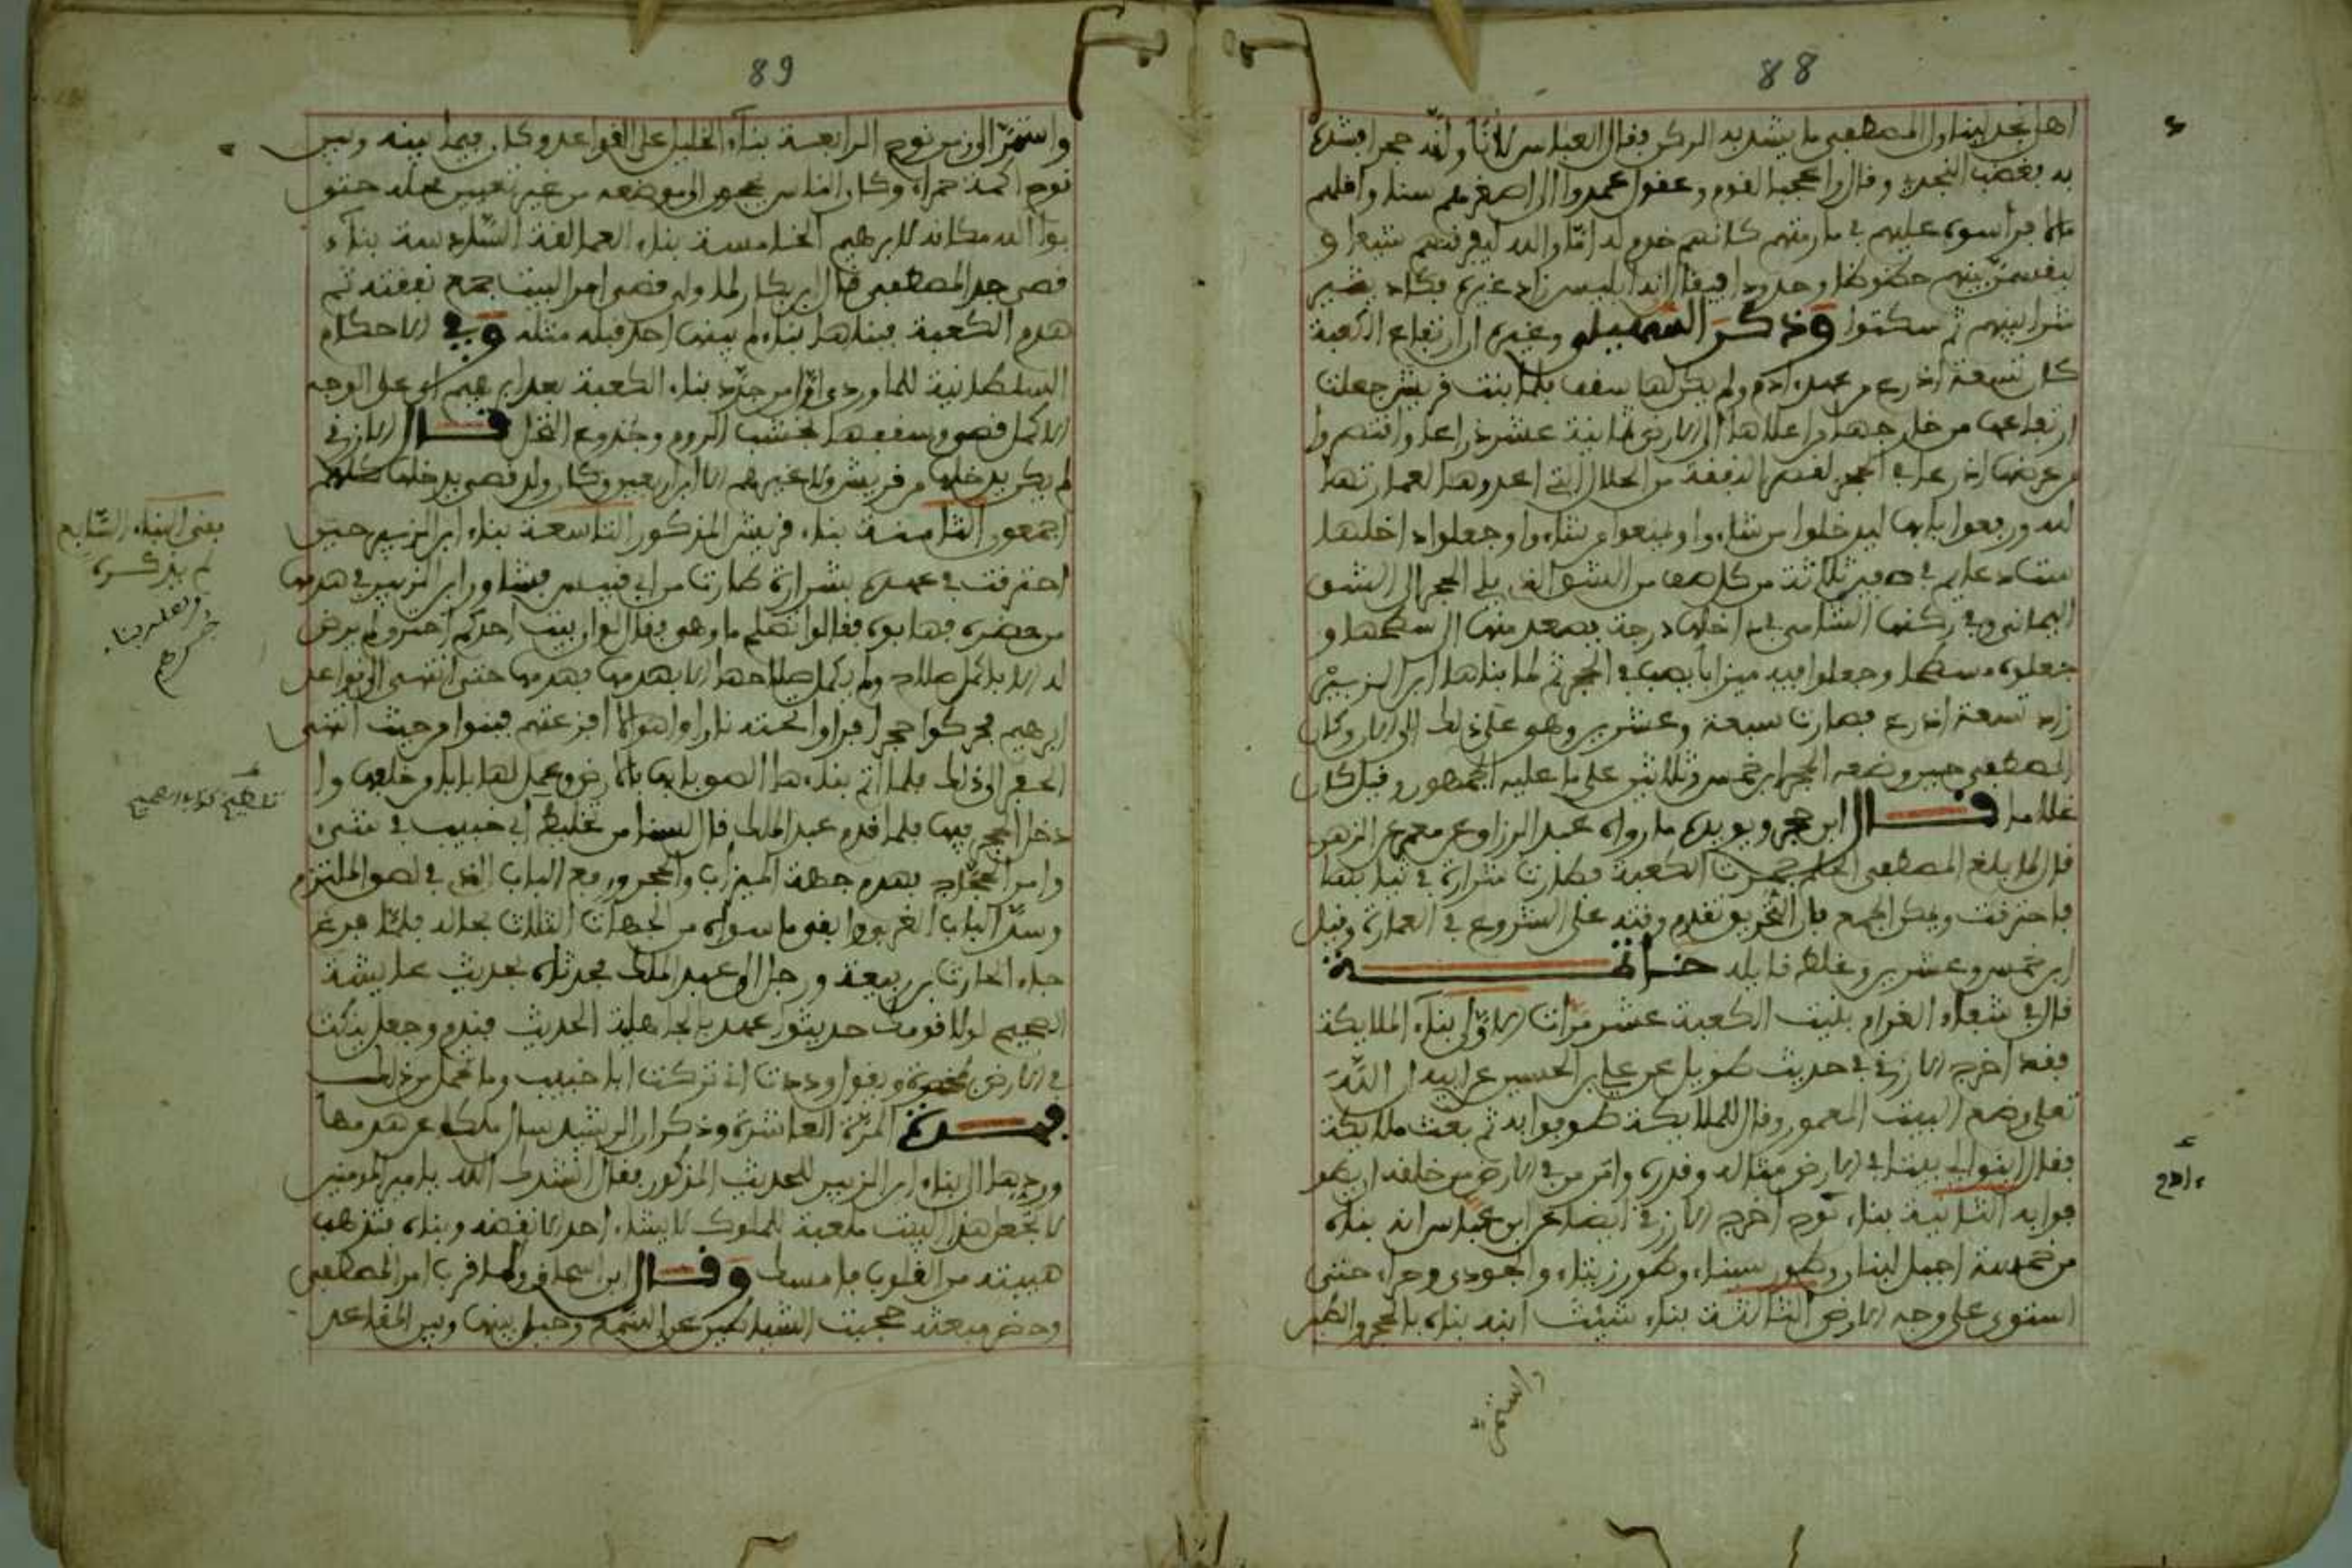 88
اهل نجد ليناول المصطفى ما يشد به الركن فقال العباس لا لا وناوله حجرا فشد
به فغضب النجدي وقال واعجبا لقوم وعقول عمدوا الى اصغرهم سنا واقلهم
مالا فرأسوه عليهم في مكرمتهم كانهم خدم له اما والله ليفرقنهم شيعا و
ليقسمن بينهم حظوظا وحدودا فيقال انه ابليس زاد غيره فكاد يثير
شرا بينهم ثم سكتوا وذكر السهيلي وغيره ان ارتفاع الكعبة
كان تسعة اذرع من عهد ادم ولم يكن لها سقف فلما بنت قريش جعلت
ارتفاعها من خارجها من اعلاها الى الارض ثمانية عشر ذراعا وانتقصوا
من عرضها اذرعا في الحجر لقصر النفقة من الحلال التي اعدوها لعمارتها
لله ورفعوا بابها ليدخلوا من شاءوا ويمنعوا من شاءوا وجعلوا داخلها
ست دعايم في صفين ثلاثة من كل صف من الشق الذي يلي الحجر الى الشق
اليماني وفي ركنها الشامي من داخلها درجة يصعد منها الى سطحها و
جعلوه مسطحا وجعلوا فيه ميزابا يصب في الحجر ثم لما بناها ابن الزبير
زاد تسعة اذرع فصارت سبعة وعشرين وهو على ذلك الى الان وكان
المصطفى حين وضعه الحجر ابن خمس وثلاثين على ما عليه الجمهور وقيل كان
غلاما قال ابن حجر ويويده ما رواه عبد الرزاق عن معمر عن الزهري
قال لما بلغ المصطفى الحلم جمرت الكعبة فطارت شرارة في ثيابها
فاحترقت ويمكن الجمع بان الحريق تقدم وقته على الشروع في العمارة وقيل
ابن خمس وعشرين وغلط قايله خاتمة
قال في شفاء الغرام بنيت الكعبة عشر مرات الاولى بناء الملايكة
فقد اخرج الازرقي في حديث طويل عن علي بن الحسين عن ابيه ان الله
تعلى وضع البيت المعمور وقال للملايكة طوفوا به ثم بعث ملايكة
فقال ابنوا لي بيتا في الارض مثاله وقدره وامر من في الارض من خلقه ان يطو
فوا به الثانية بناء ءادم اخرج الازرقي ايضا عن ابن عباس انه بناه
من خمسة اجبل لبنان وطور سيناء وطور زيتاء والجودي وحراء حتى
استوى على وجه الارض الثالثة بناء شيث ابنه بناه بالحجر والطين
واستمر
89
واستمر الى زمن نوح الرابعة بناء الخليل على القواعد وكان فيما بينه وبين
نوح اكمة حمراء وكان الناس يحجون الى موضعه من غير تعيين محله حتى
بوا الله مكانه لابرهيم الخامسة بناء العمالقة السادسة بناء
قصي جد المصطفى قال ابن بكار لما ولي قصي امر البيت جمع نفقته ثم
هدم الكعبة فبناها بناء لم يبنها احد قبله مثله وفي الاحكام
السلطانية للماوردي اول من جدد بناء الكعبة بعد ابرهيم اي على الوجه
الاكمل قصي وسقفها بخشب الدوم وجذوع النخل قال الازرقي
لم يكن يدخلها من قريش ولا غيرهم الا ابن اربعين وكان ولد قصي يدخلها كلهم
اجمعون الثامنة بناء قريش المذكور التاسعة بناء ابن الزبير حين
احترقت في عهده بشرارة طارت من ابي قبيس فشاور ابن الزبير في هدمها
من حضره فهابوه فقالوا نصلح ما وهى فقال لو ان بيت احدكم احترق لم يرض
له الا باكمل صلاح ولم يكمل صلاحها الا بهدمها فهدمها حتى انتهى الى قواعد
ابرهيم فحركوا حجرا فراوا تحته نارا واهوالا افزعتهم فبنوا من حيث انتهى
الحفر الى ذلك فلما اتم بناءها الصق بابها بالارض وعمل لها بابا من خلفها وا
دخل الحجر فيها فلما قدم عبد الملك قال لسنا من تخليط ابي خبيب في شيء
وامر الحجاج بهدم جهة الميزاب والحجر ورفع الباب الذي في لصق الملتزم
وسد الباب الغربي وابقى ما سواه من الجهات الثلاث بحاله فلما فرغ
جاءه الحارث بن ربيعة ورجل الى عبد الملك فحدثاه بحديث عايشة
الصحيح لولا قومك حديثو عهد بالجاهلية الحديث فندم وجعل ينكت
في الارض بمخصرة ويقول وددت اني تركت ابا خبيب وما تحمل من ذلك
فهذه المرة العاشرة وذكر ان الرشيد سال مالكا عن هدمها
وردها الى بناء ابن الزبير للحديث المذكور فقال انشدك الله يا امير المومنين
لا تجعل هذا البيت ملعبة للملوك لا يشاء احد الا نقضه وبناه فتذهب
هيبته من القلوب فامسك وقال ابن اسحاق ولما قرب امر المصطفى
وحضر مبعثه حجبت الشياطين عن السمع وحيل بينها وبين المقاعد
يعني البناء السابع
لم يذكره